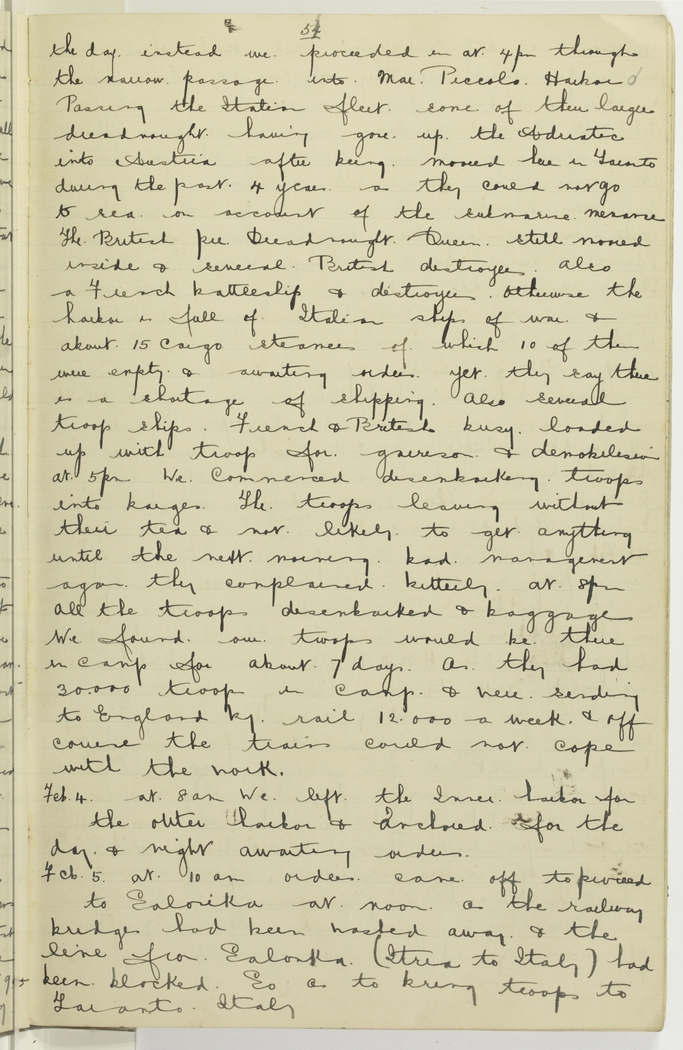 54
the day. instead we. proceeded in at. 4pm through
the narrow. passage. into. Mar. Piccolo. Harbor
Passing the Italian fleet. some. of their larger
dreadnought. having gone. up. the Adriatic
into Austria after being. moored here in Taranto
during the past. 4 years. as they could not go
to sea. on account of the submarine. menance
The. British pre. Dreadnought. Queen. still moored
inside & several. British destroyers. also
a French battleship & destroyers. otherwise the
harbor is full of. Italian ships of war. &
about. 15 Cargo steamers of. which 10 of them
were empty. & awaiting orders. yet. they say there
is a shortage of shipping. Also several
troop ships. French & British busy. loaded
up with troops for. garrison. & demobilesion
at. 5pm We. Commenced disenbarking. troops
into barges. The. troops leaving without
their tea & not. likely. to get anything
until the next. morning. bad. management
again. they complained. bitterly. at. 8pm
all the troops disenbarked & baggage
We found. our troops would be. there
in camp for about. 7 days. As. they had
30.000 troops in Camp. & were. sending
to England by. rail 12.000 a week. & off
course the trains could not. cope
with the work.
Feb. 4. at. 8am We. left. the Inner. harbor for
the outer harbor & Anchored. for the
day. & night awaiting orders.
Feb. 5. at. 10 am orders. came. off to proceed
to Salonika at. noon. as the railway
bridges had been washed away. & the
line from. Salonka. (Itrea to Italy) had
been. blocked. So as to bring troops to
Taranto. Italy